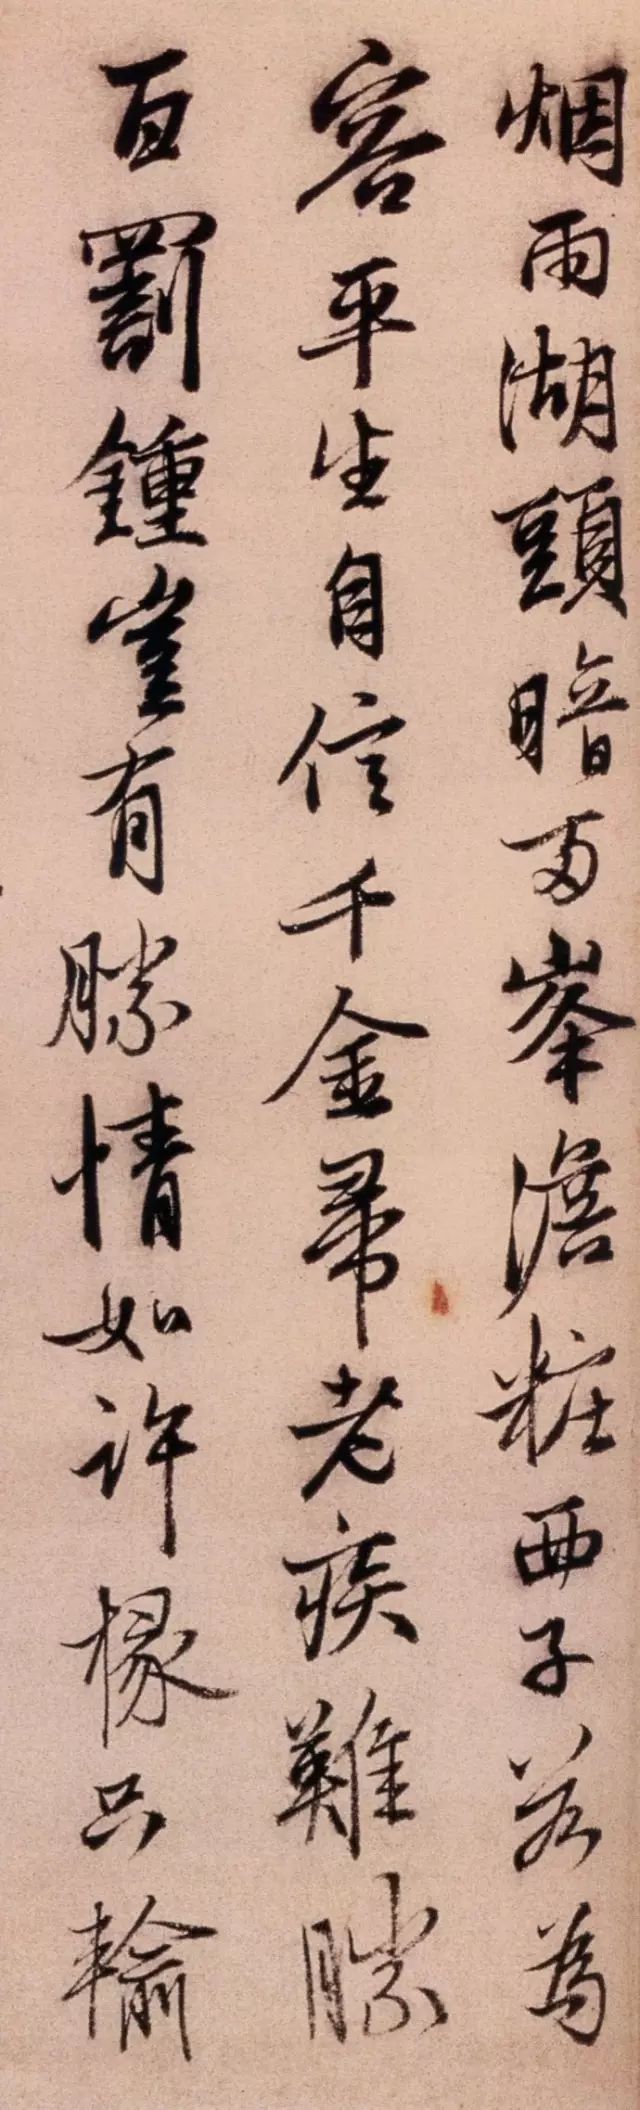 烟雨湖頭暗两峯澹粧西子若為
容平生自信千金帚老疾難勝
百罰鍾豈有勝情如許掾只輸